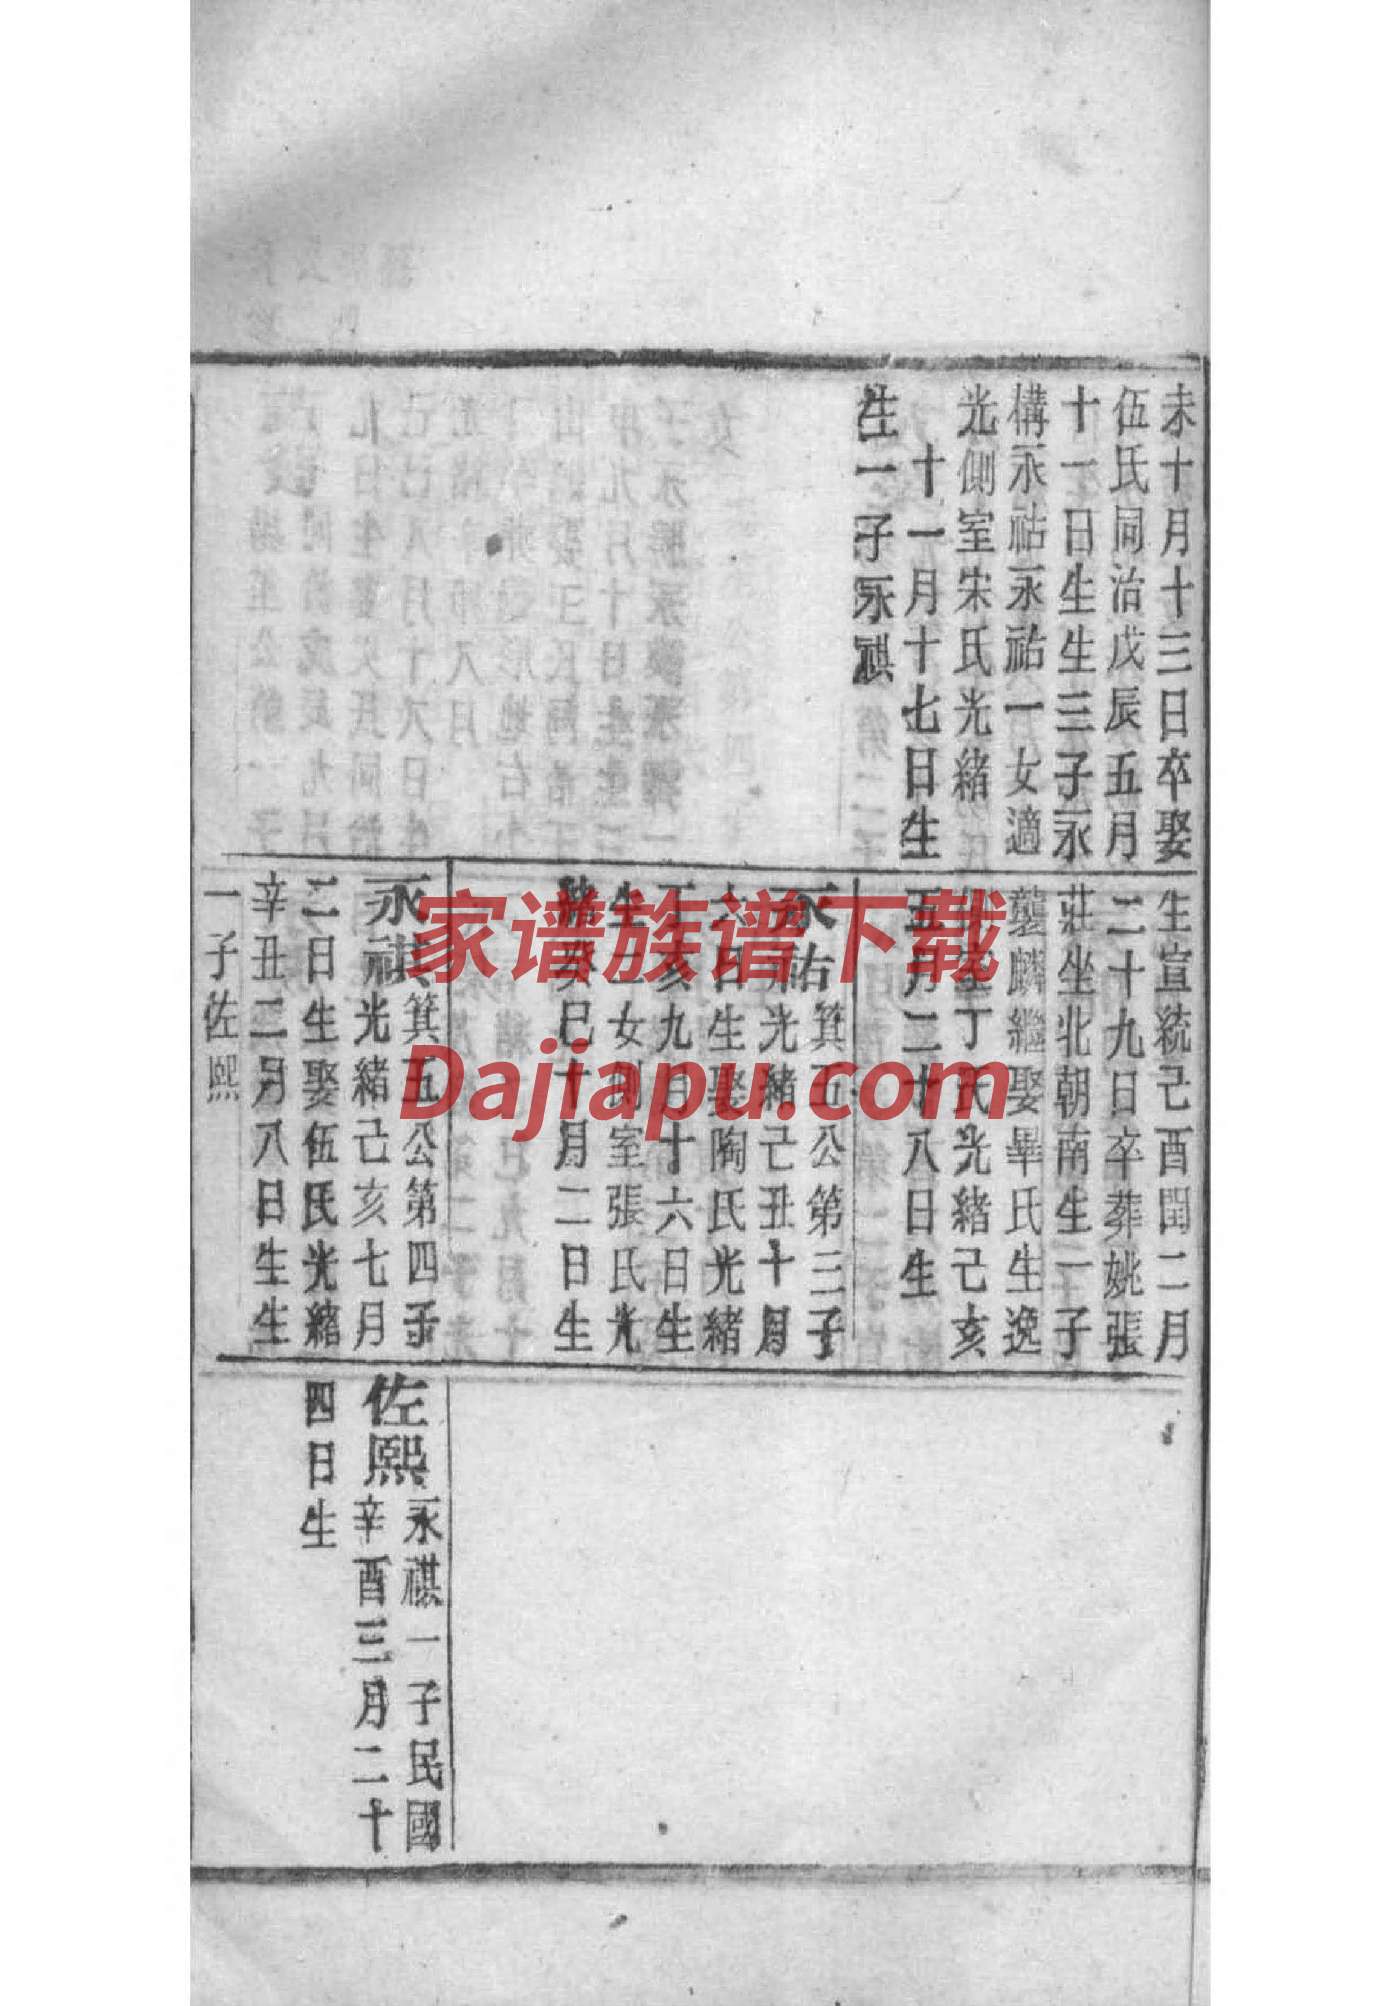 未十月十三日卒娶
伍氏同治戊辰五月
十一日生生三子永
構永祜永祐一女適
光側室宋氏光緒
十一月十七日生
生一子永祺
生宣統己酉閏二月
二十九日卒葬姚張
莊坐北朝南生一子
龔麟繼娶畢氏生逸
室丁氏光緒己亥
五月二十八日生
永祐箕五公第三子
光緒己丑十月
六日生娶陶氏光緒
丁亥九月十六日生
生二女側室張氏光
緒癸巳十月二日生
永祺箕五公第四子
光緒己亥七月
二日生娶伍氏光緒
辛丑二月八日生生
一子佐熙
佐熙永祺一子民國
辛酉三月二十
四日生
家谱族谱下载
Dajiapu.com